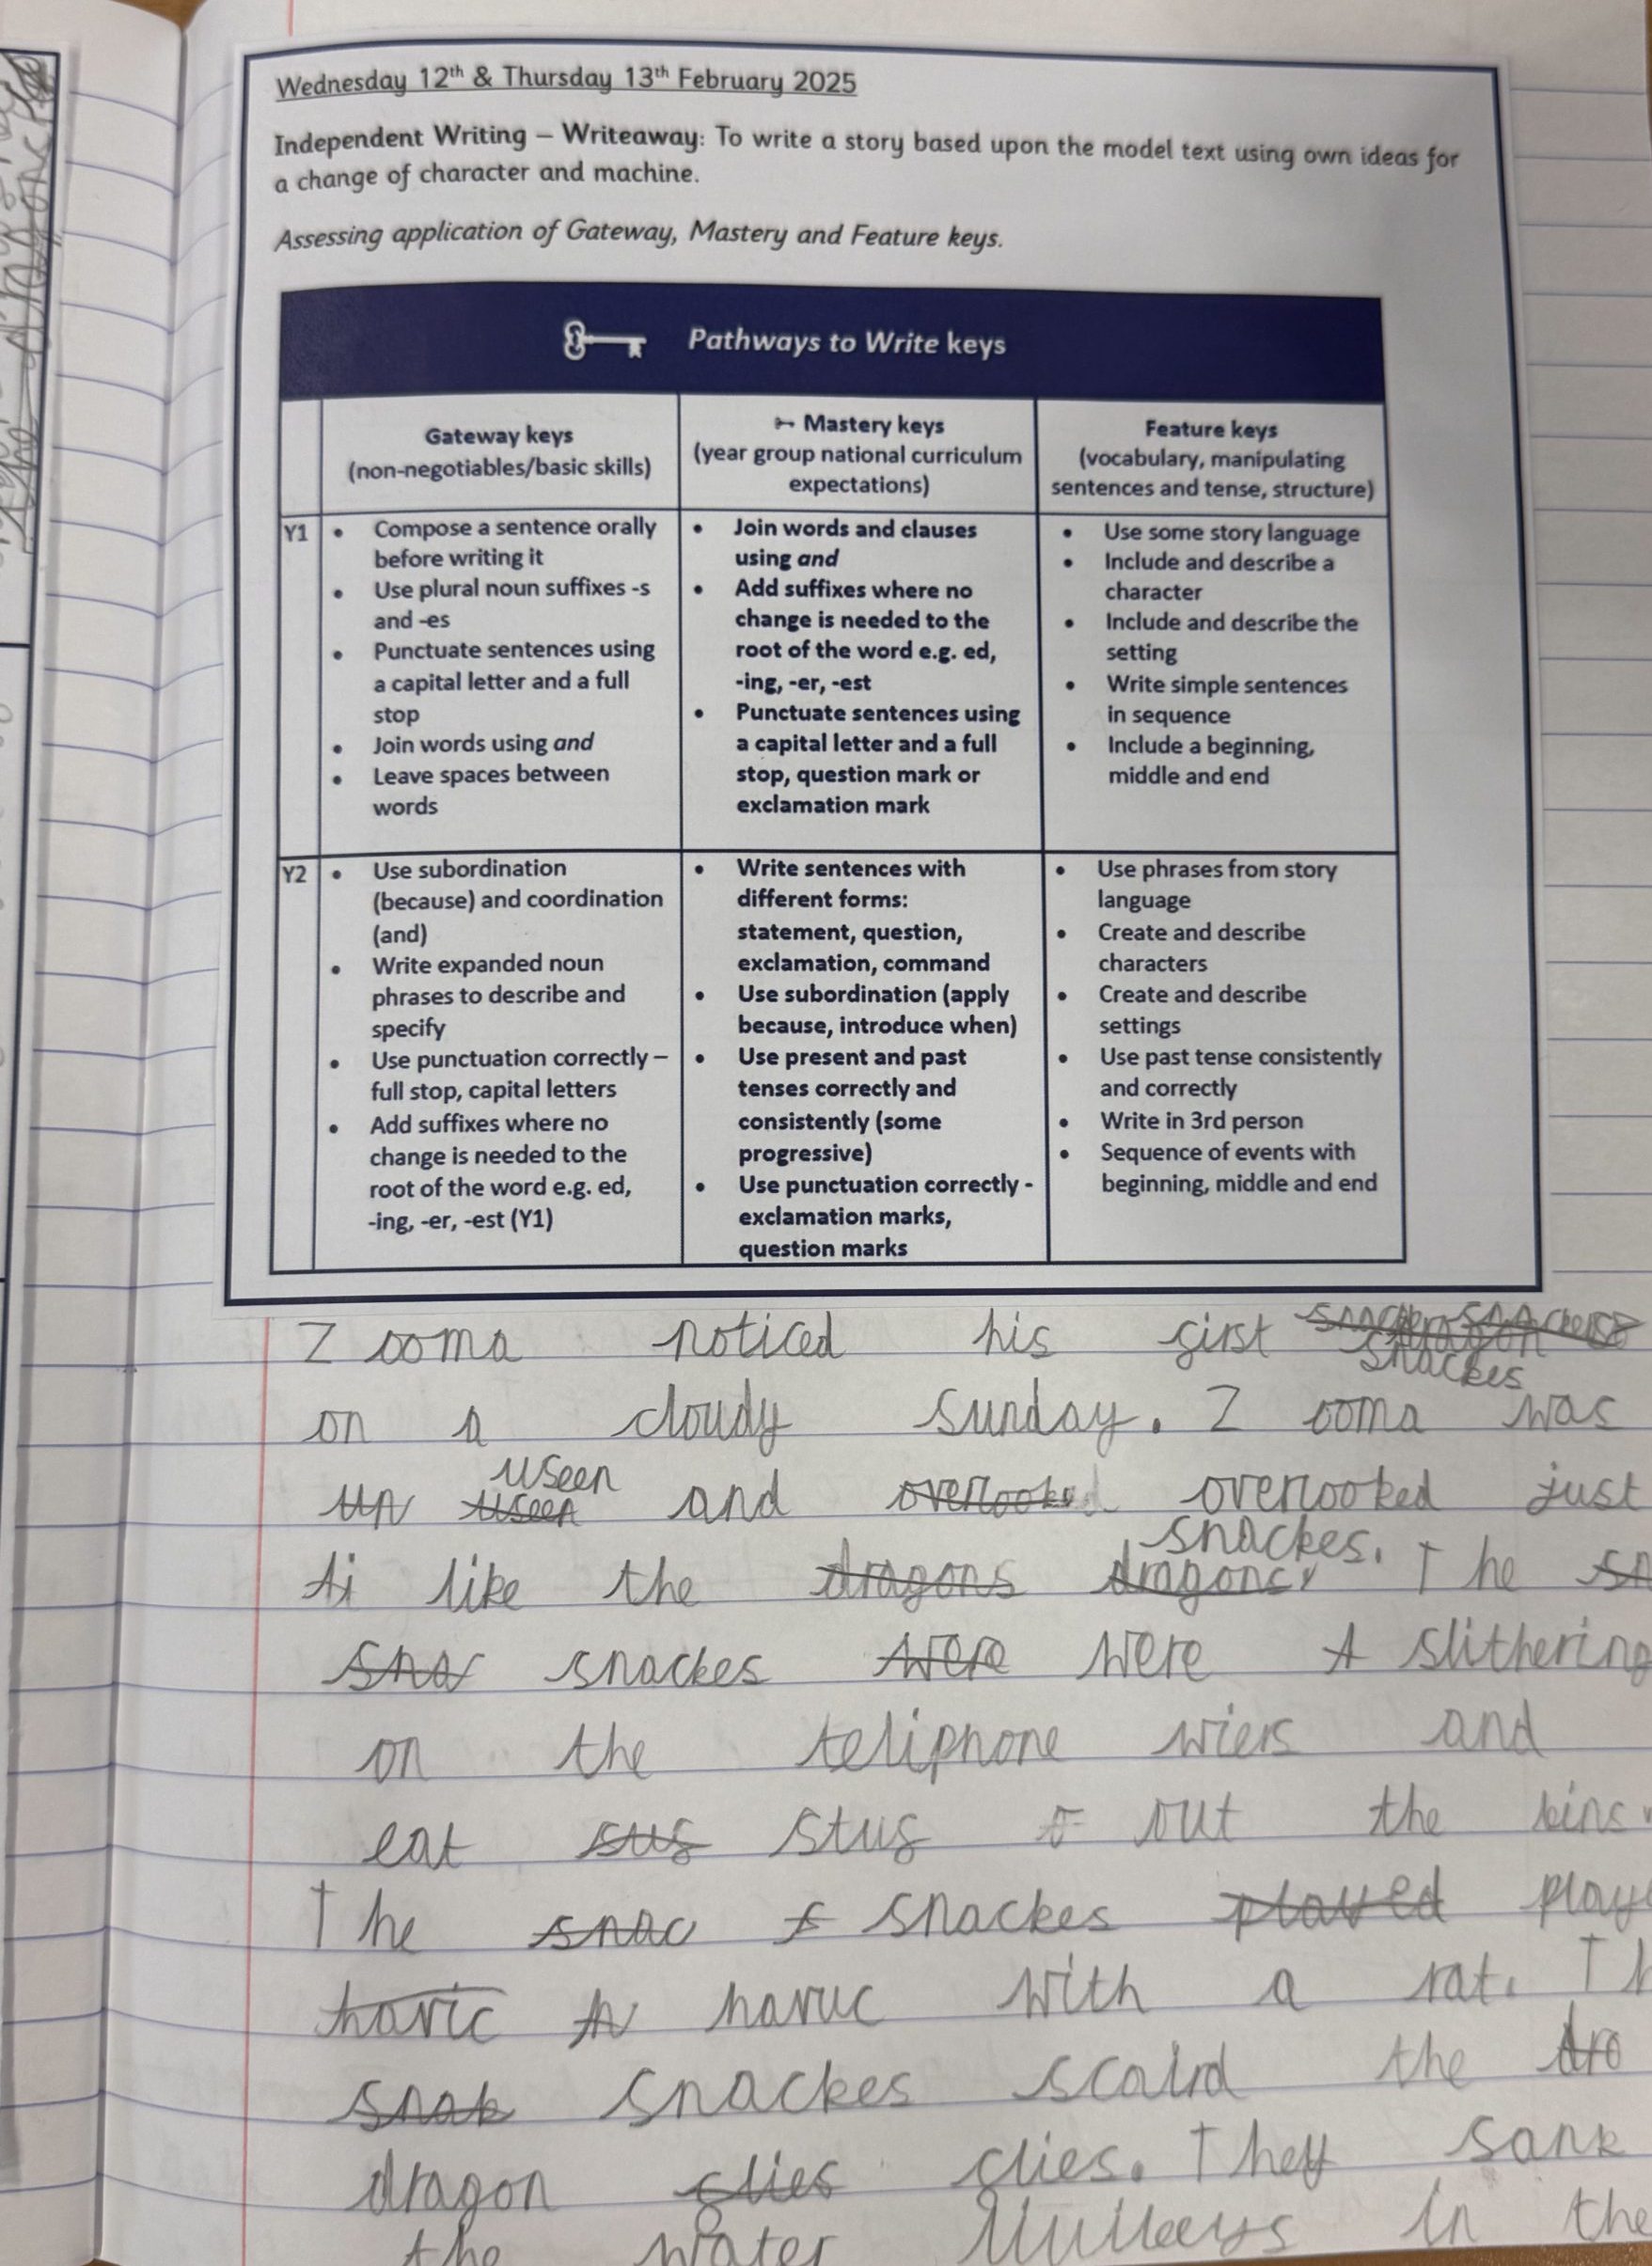 Wednesday 12th & Thursday 13th February 2025
Independent Writing – Writeaway: To write a story based upon the model text using own ideas for
a change of character and machine.
Assessing application of Gateway, Mastery and Feature keys.
Pathways to Write keys
Gateway keys
(non-negotiables/basic skills)
Mastery keys
(year group national curriculum
expectations)
Feature keys
(vocabulary, manipulating
sentences and tense, structure)
Y1
• Compose a sentence orally
before writing it
• Use plural noun suffixes -s
and -es
• Punctuate sentences using
a capital letter and a full
stop
• Join words using and
• Leave spaces between
words
• Join words and clauses
using and
• Add suffixes where no
change is needed to the
root of the word e.g. ed,
-ing, -er, -est
• Punctuate sentences using
a capital letter and a full
stop, question mark or
exclamation mark
• Use some story language
• Include and describe a
character
• Include and describe the
setting
• Write simple sentences
in sequence
• Include a beginning,
middle and end
Y2
• Use subordination
(because) and coordination
(and)
• Write expanded noun
phrases to describe and
specify
• Use punctuation correctly –
full stop, capital letters
• Add suffixes where no
change is needed to the
root of the word e.g. ed,
-ing, -er, -est (Y1)
• Write sentences with
different forms:
statement, question,
exclamation, command
• Use subordination (apply
because, introduce when)
• Use present and past
tenses correctly and
consistently (some
progressive)
• Use punctuation correctly -
exclamation marks,
question marks
• Use phrases from story
language
• Create and describe
characters
• Create and describe
settings
• Use past tense consistently
and correctly
• Write in 3rd person
• Sequence of events with
beginning, middle and end
Zooma noticed his girst
snackes
on a cloudy sunday. Zooma was
useen
un useen and overlooked overlooked just
snackes.
ti like the dragons dragons. The sn
sna snackes were were A slithering
on the teliphone wiers and
eat sug stug o out the bins.
The snac s snackes played play
havic h havuc with a rat. Th
snak snackes scaird the dro
dragon glies glies. They sank
the water in the